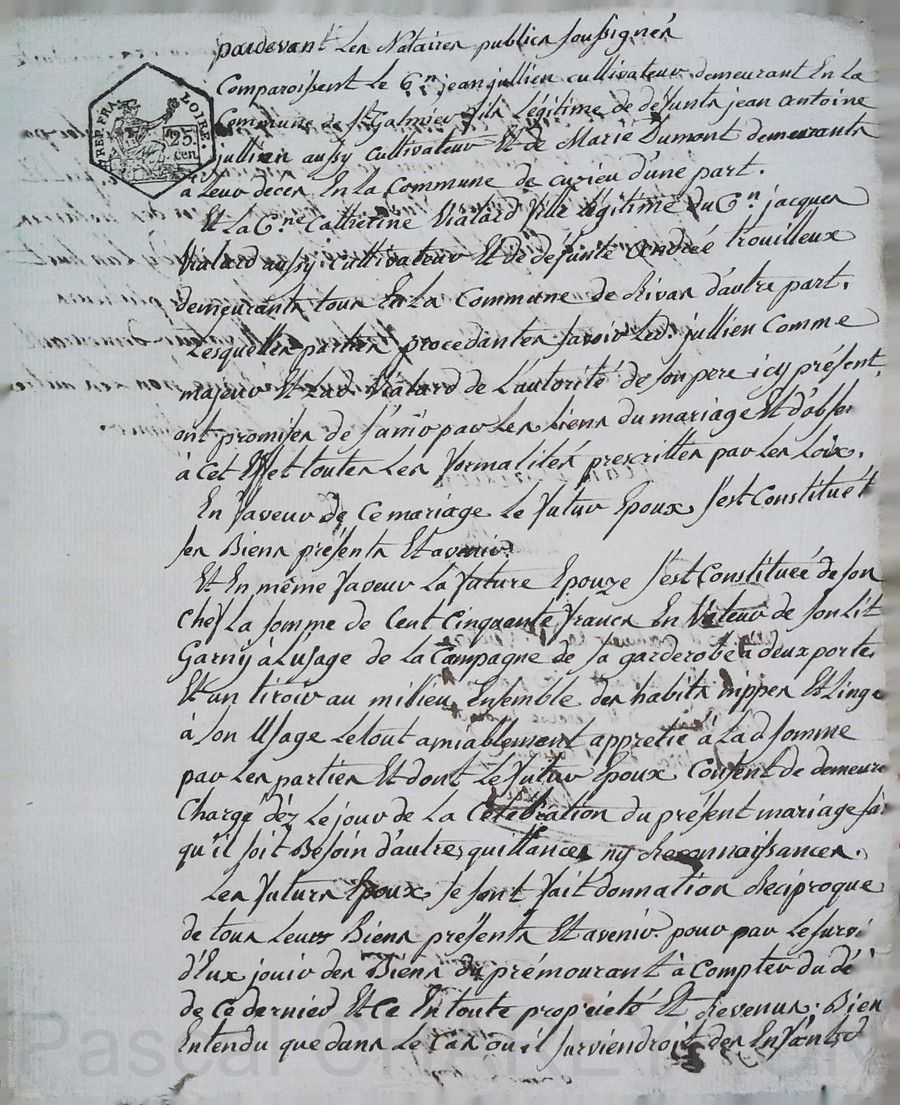 pardevant Les Notaires publics soussignés
Comparoissent le C.n jean jullien cultivateur demeurant En La
Commune de St Galmier fils Légitime de défunts jean antoine
jullien aussy Cultivateur Et de Marie Dumont demeurants
à leur decès En La Commune de cuzieu d'une part.
Et La C.ne Catherine Vialard fille légitime du C.n jacques
Vialard aussy cultivateur Et de défunte Andreé trouilleux
demeurants tous En La Commune de Rivas d'autre part.
Lesquelles parties procedantes savoir Led. jullien Comme
majeur Et Lad. Vialard de L'autorité de son pere icy présent
ont promises de s'unir par Les Liens du mariage Et d'obser
à cet Effet toutes Les formalites prescrittes par Les Loix.
En faveur de Ce mariage Le futur Epoux s'est Constitué t
ses Biens présents Et avenir.
Et En même faveur La future Epouze s'est Constitueé de son
Chef La somme de Cent Cinquante francs En Valeur de son Lit
Garny à Lusage de La Campagne de sa garderobe à deux portes
Et un tiroir au milieu Ensemble des habits nippes Et Linge
à son Usage Le tout amiablement appretié à Lad somme
par Les parties Et dont Le futur Epoux Consent de demeure
Chargé déz Le jour de La Célébration du présent mariage sa
qu'il soit Besoin d'autres quittances ny Reconnaissances.
Les futurs Epoux se sont fait donnation Reciproque
de tous Leurs Biens présents Et avenir pour par Le survi
d'Eux jouir des Biens du prémourant à Compter du dé
de ce dernier Et Ce En toute propriété Et Revenus. Bien
Entendu que dans Le Cas ou il surviendroit des Enfants d
REP. FRA. LOIRE.
25
cen.
Pascal